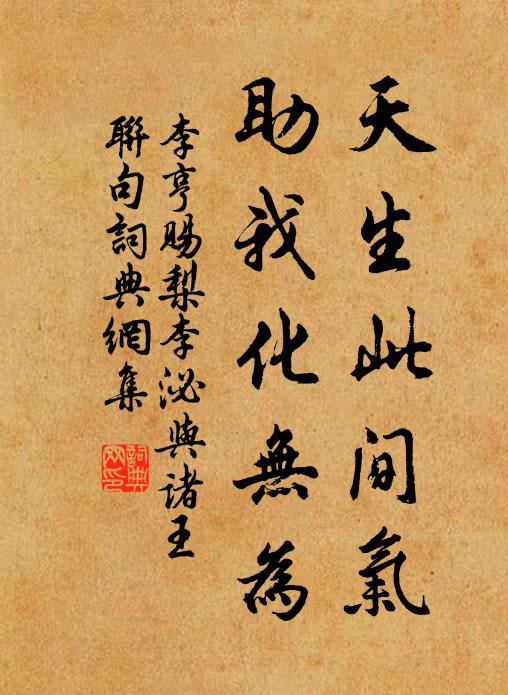 天生此间氣
助我化無為
李亨賜梨李泌與诸王
聯句詞典網集
詞典
网印